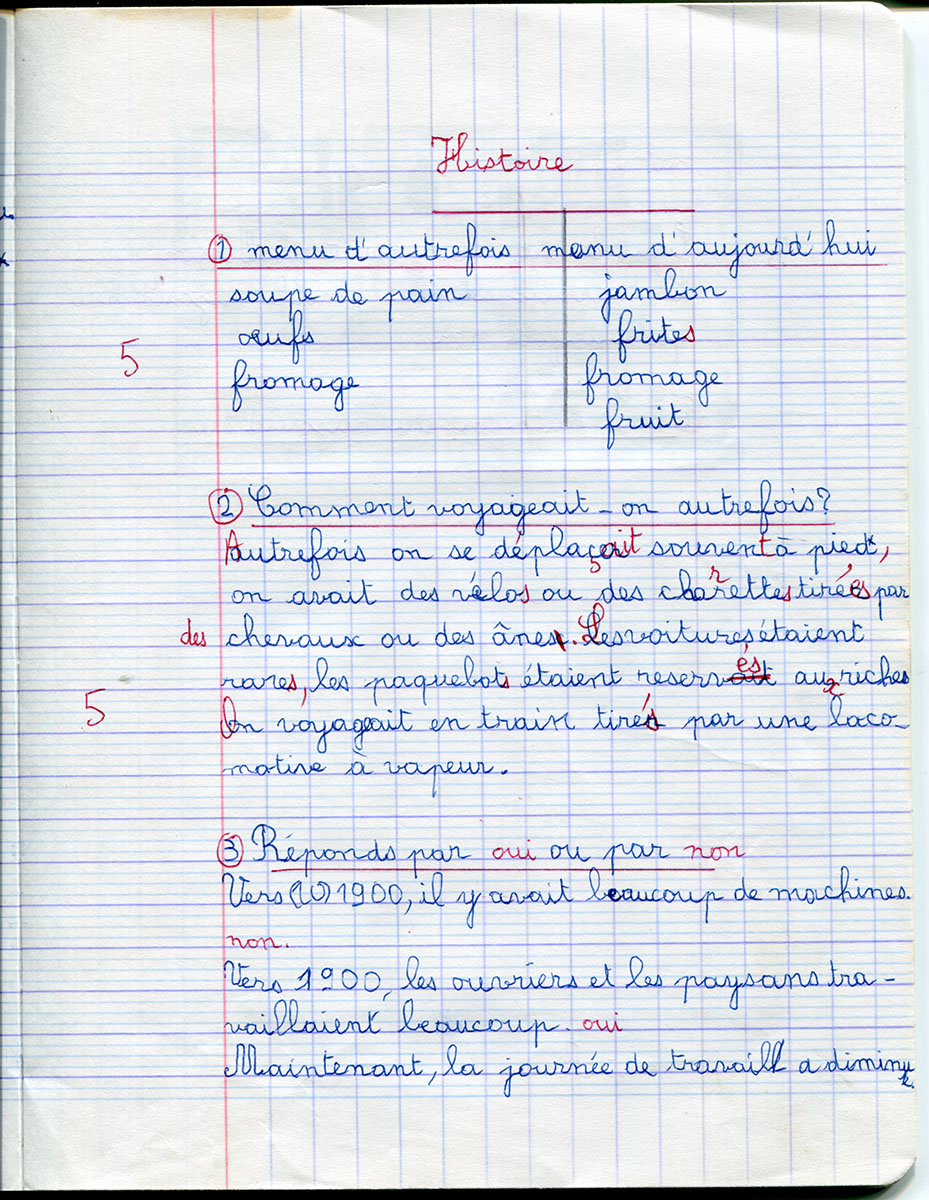 Histoire
① menu d'autrefois menu d'aujourd'hui
soupe de pain jambon
œufs frites
5
fromage fromage
fruit
② Comment voyageait-on autrefois?
Autrefois on se déplaçait souvent à pied,
on avait des vélos ou des charrettes tirées par
des chevaux ou des ânes. Les voitures étaient
rares, les paquebots étaient reservés aux riches
5
On voyageait en train tirés par une loco-
motive à vapeur.
③ Réponds par oui ou par non
Vers (10) 1900, il y avait beaucoup de machines.
non.
Vers 1900, les ouvriers et les paysans tra-
vaillaient beaucoup. oui
Maintenant, la journée de travail a diminu